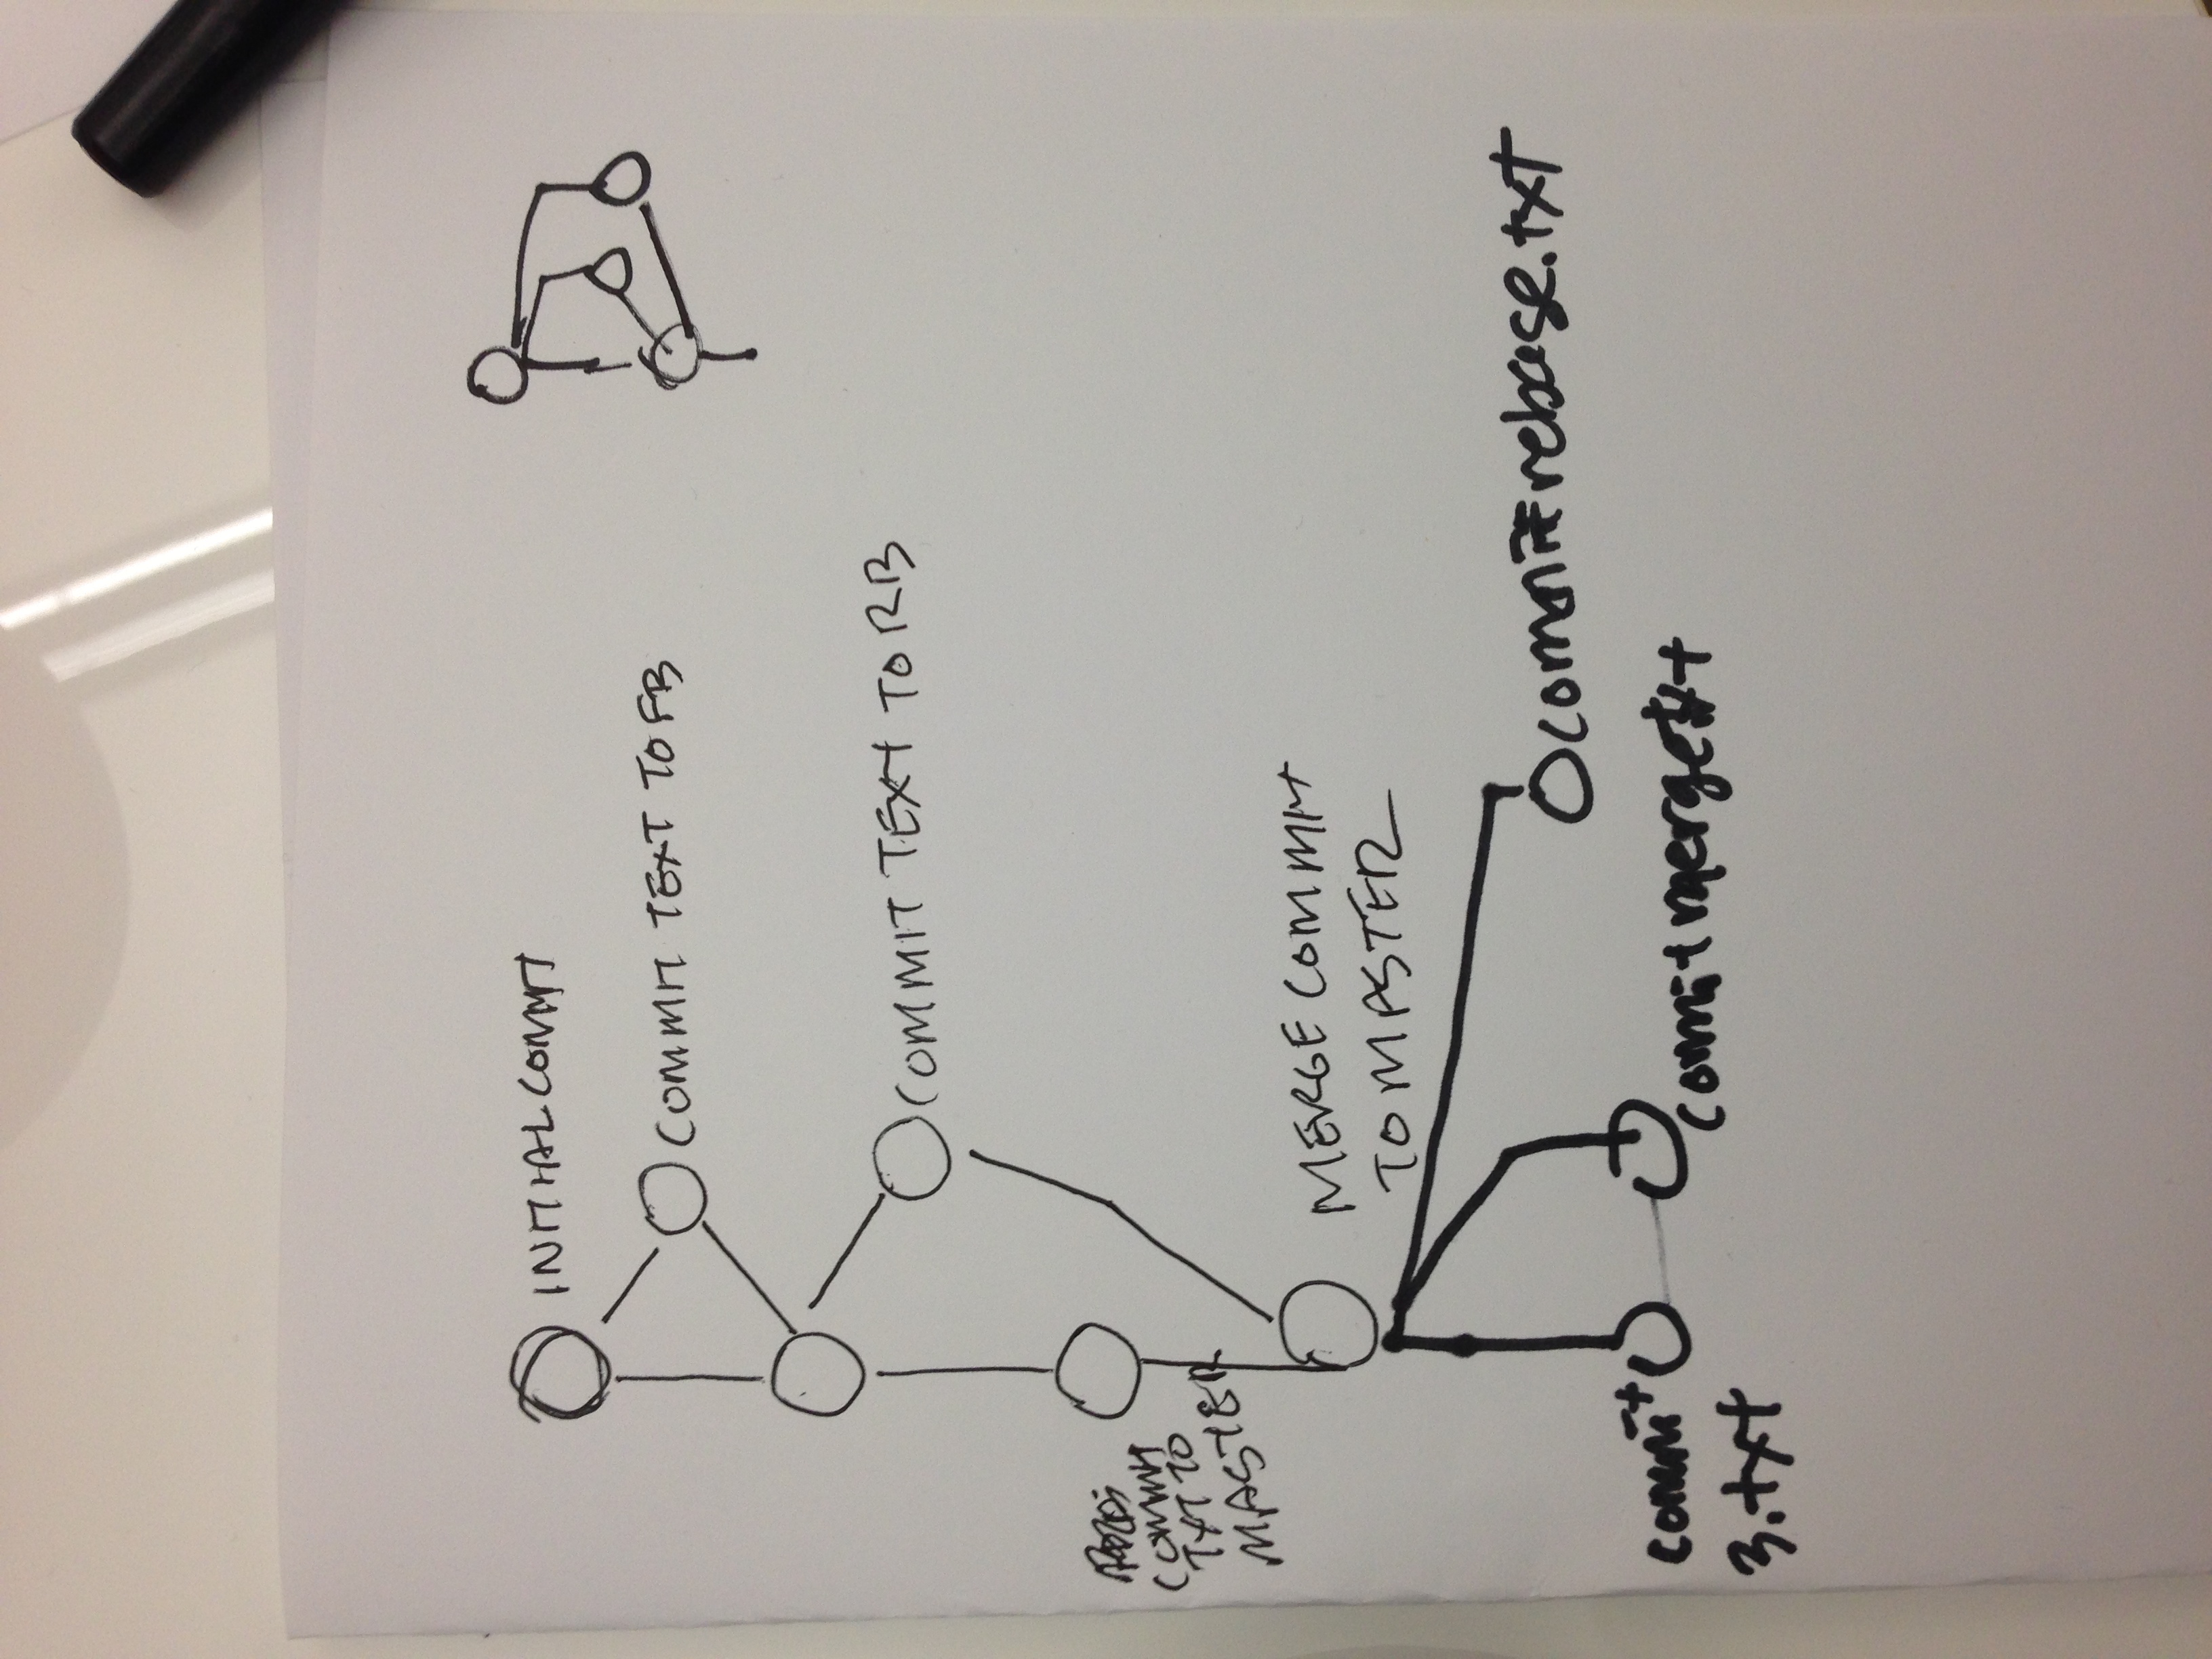 INITIAL COMMIT
COMMIT TEXT TO FB
COMMIT TEXT TO RB
COMMIT
TXT TO
MASTER
MERGE COMMIT
TO MASTER
commit rebase.txt
commit
3.txt
commit merge txt